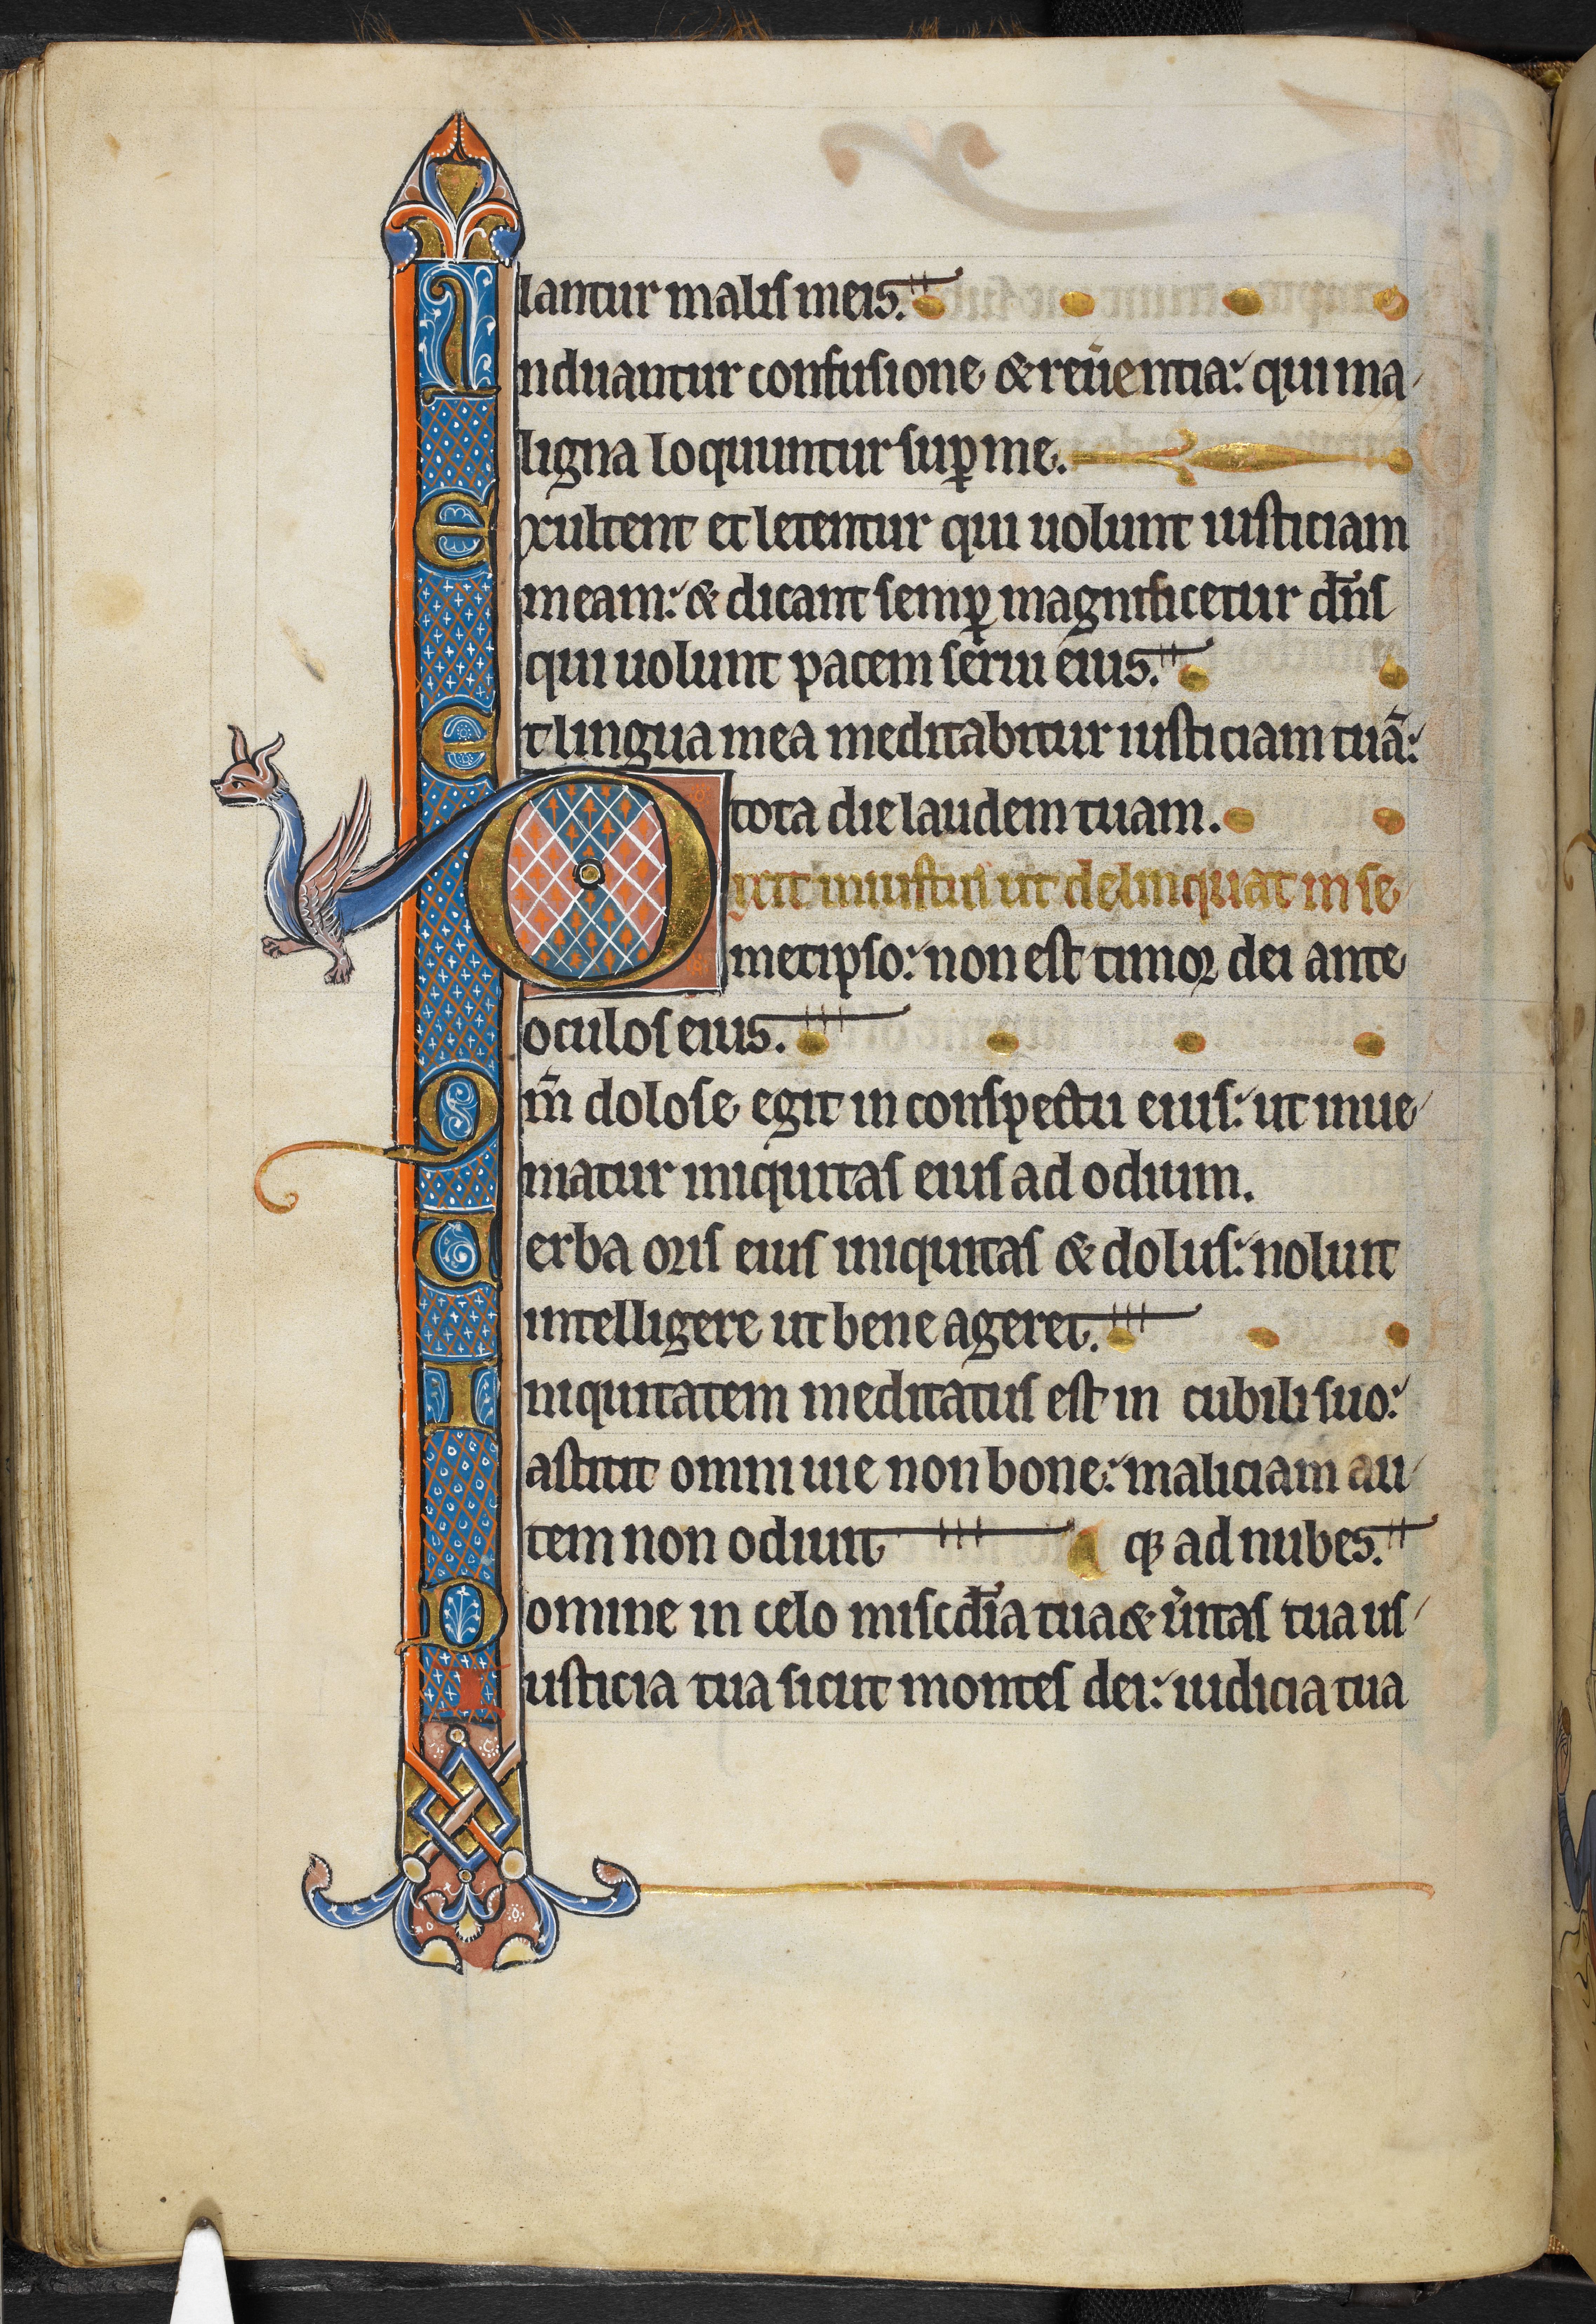 lantur malis meis.
Induantur confusione & reuerentia: qui ma
ligna loquuntur sup̱ me.
exultent et letentur qui uolunt iusticiam
meam: & dicant semp̱ magnificetur dn̄s
qui uolunt pacem serui eius.
et lingua mea meditabitur iusticiam tuā:
tota die laudem tuam.
Dixit iniustus ut delinquat in se
metipso: non est timor dei ante
oculos eius.
Qm̄ dolose egit in conspectu eius: ut inue
niatur iniquitas eius ad odium.
Verba oris eius iniquitas & dolus: noluit
intelligere ut bene ageret.
Iniquitatem meditatus est in cubili suo:
astitit omni uie non bone: maliciam au
tem non odiuit
qȝ ad nubes.
Domine in celo misc̄dia tua & u̓itas tua us
Iusticia tua sicut montes dei: iudicia tua